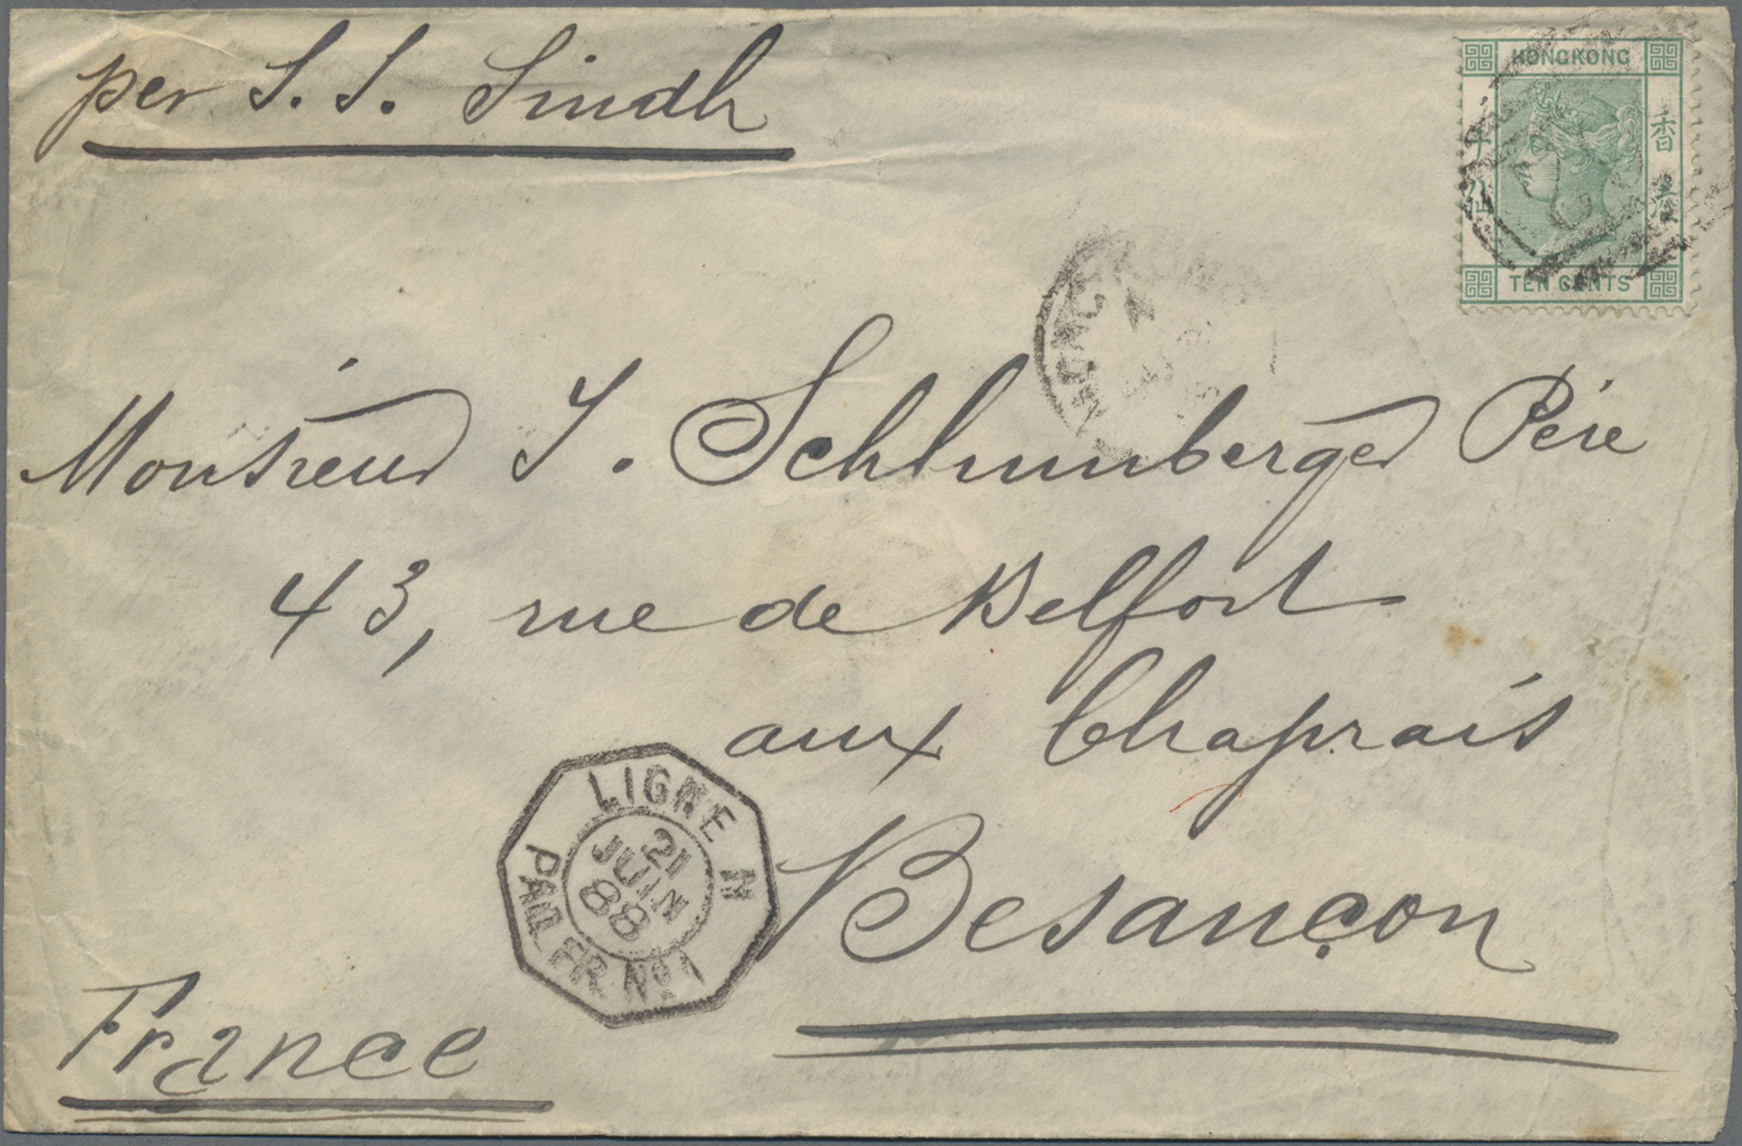 per S. S. Sindh
HONGKONG
香港
TEN CENTS
HONG KONG
A
Monsieur J. Schlumberger Père
43, rue de Belfort
aux Chaprais
Besançon
France
LIGNE N
21
JUIN
88
PAQ. FR. No. 1